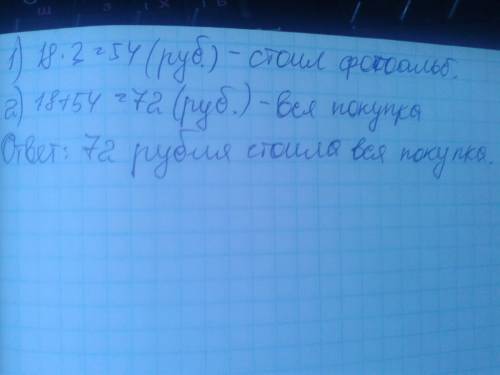 1) 18·3=54 (руб.) - стоил фотоальб.
2) 18+54=72 (руб.) - вся покупка
Ответ: 72 рубля стоила вся покупка.